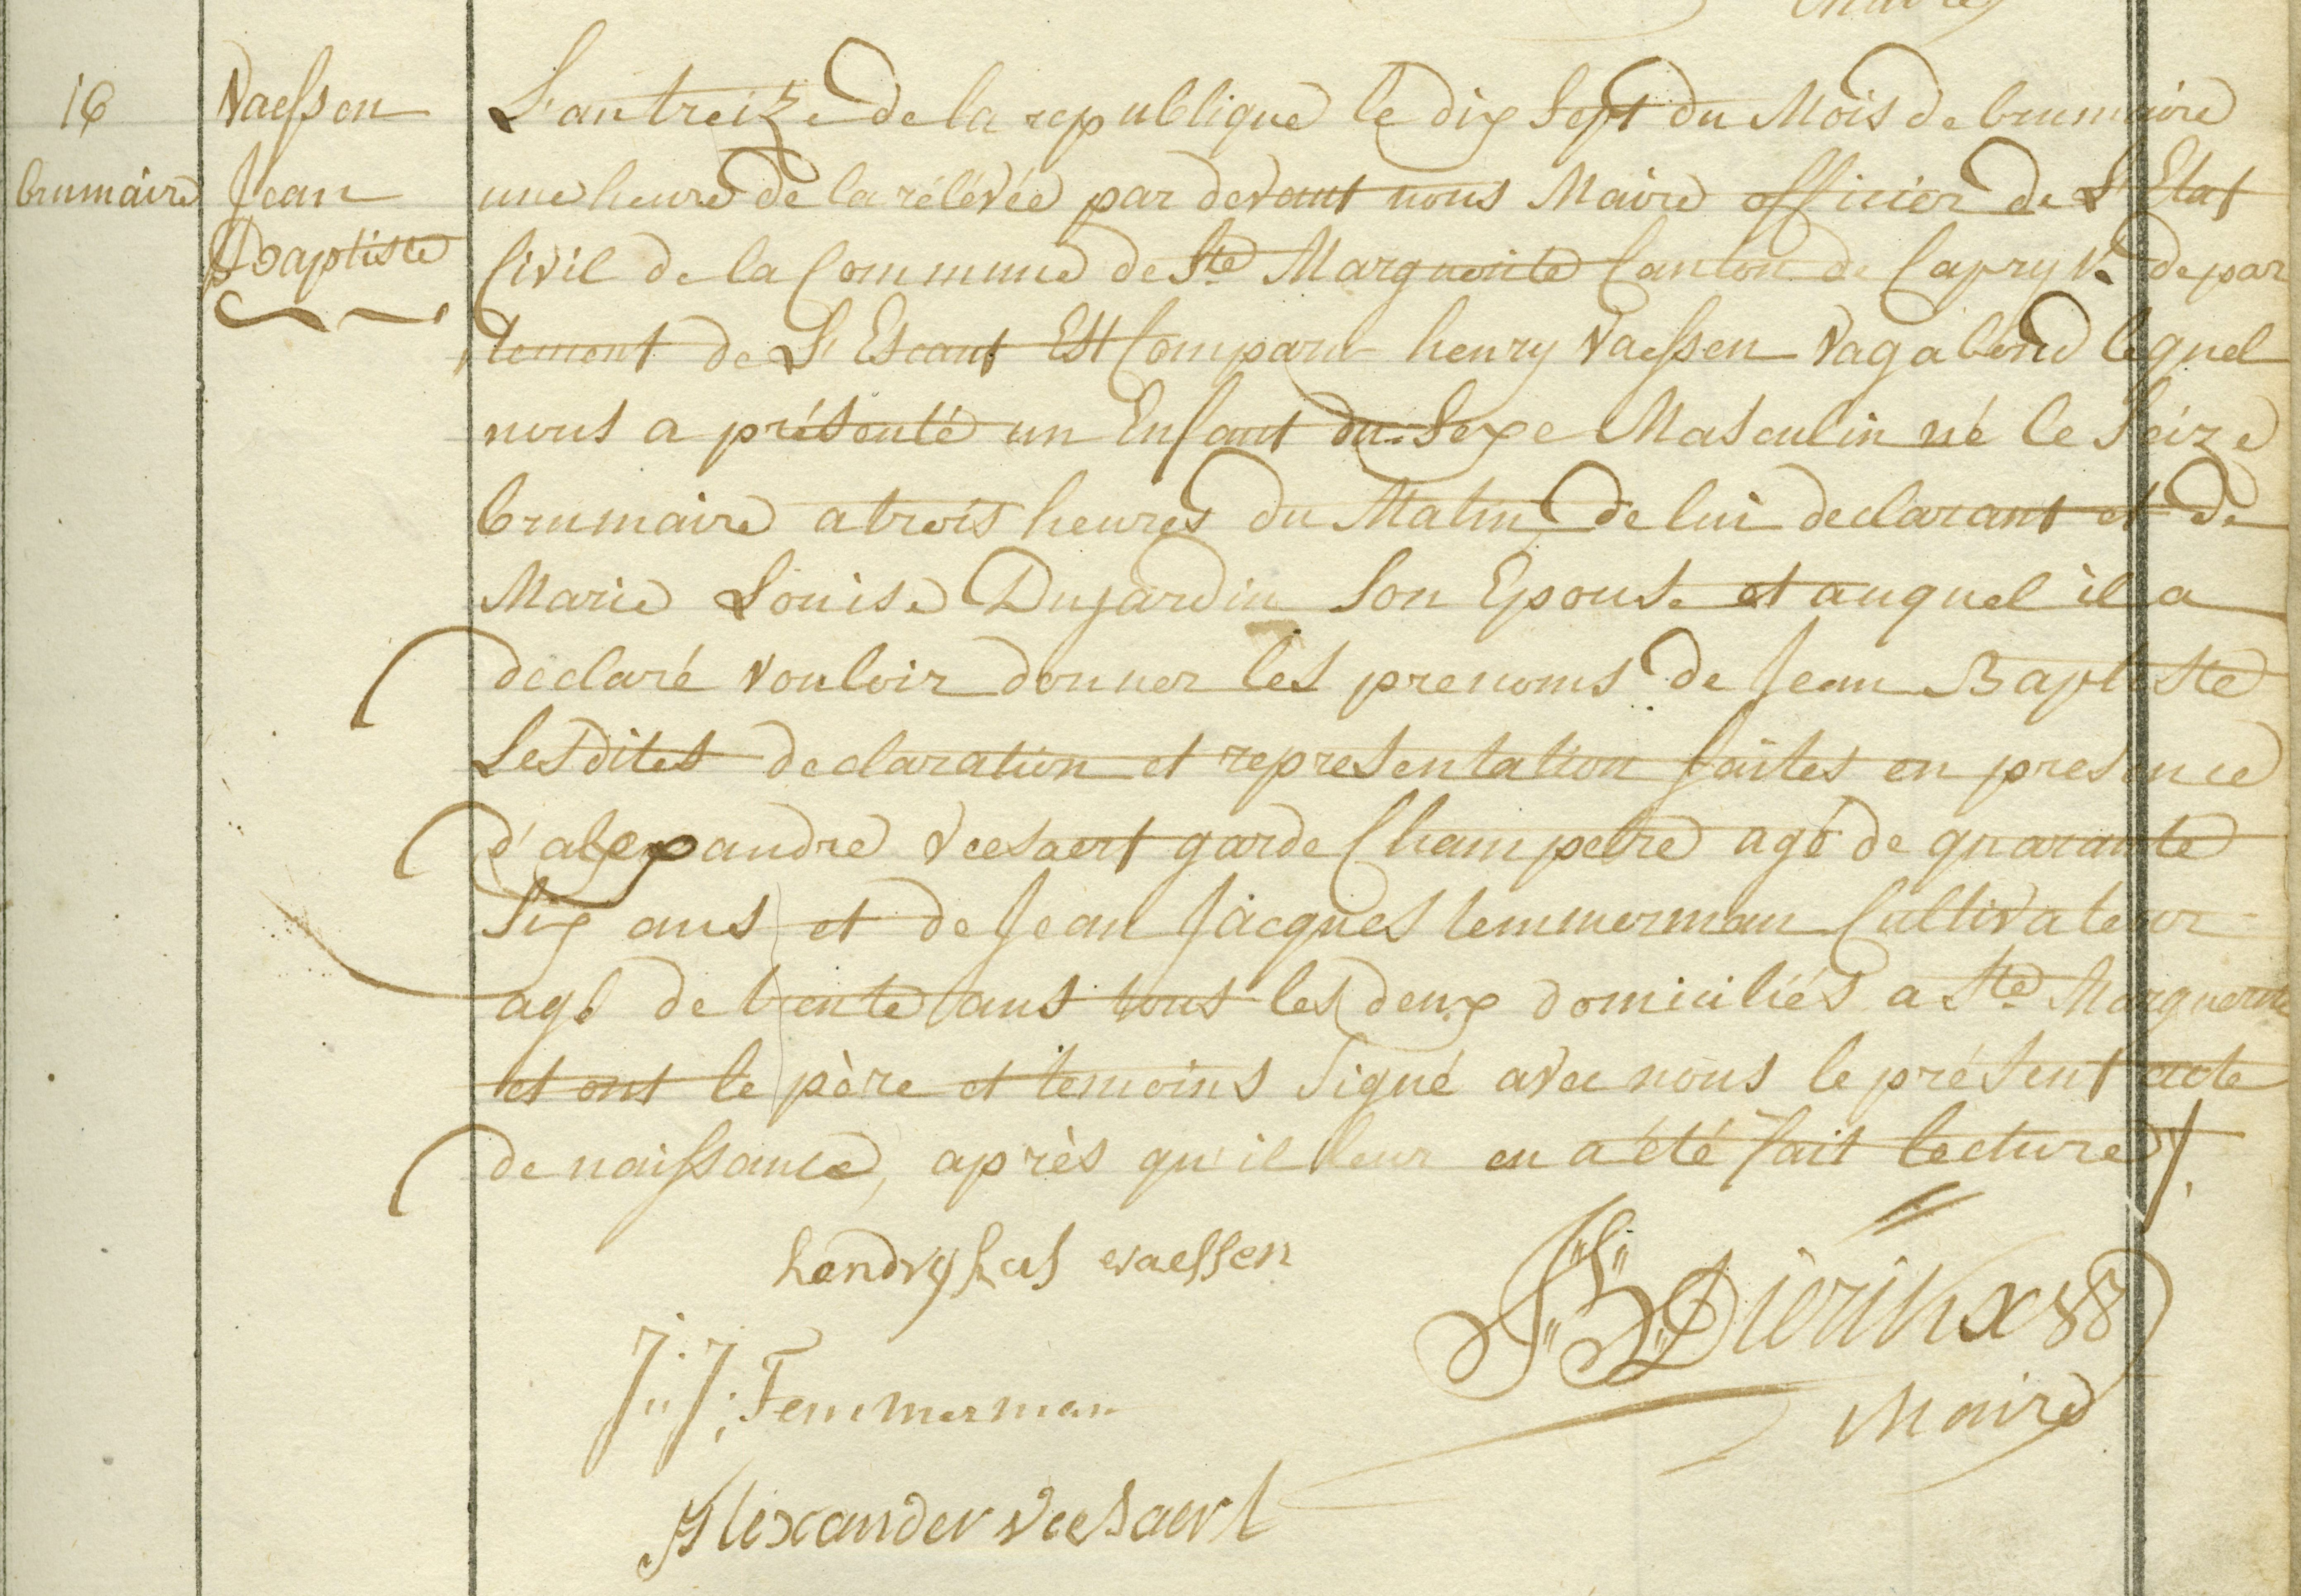 16
brumaire
Vaessen
Jean
Baptiste
L'an treize de la republique le dix Sept du Mois de brumaire
une heure de la rélévée par devant nous Maire officier de L'Etat
Civil de la Commune de Ste Marguerite Canton de Capryk depar
tement de L'Escaut Est Comparu henry Vaessen Vagabond lequel
nous a présenté un Enfant du Sexe Masculin né le Seize
brumaire a trois heures du Matin, de lui declarant et de
Marie Louise Dujardin Son Epouse et auquel il a
declaré vouloir donner les prenoms de Jean Baptiste
Lesdites declaration et representation faites en presence
d'alexandre Veesaert garde Champetre agé de quarante
Six ans et de Jean Jacques temmerman Cultivateur
agé de trente ans tous les deux domiciliés a Ste Marguerite
et ont le père et temoins Signé avec nous le présent acte
de naissance, après qu'il leur en a été fait lecture
hendryKus vaessen
Dierikx
J: J: Temmerman
Maire
Alexander Veesaert